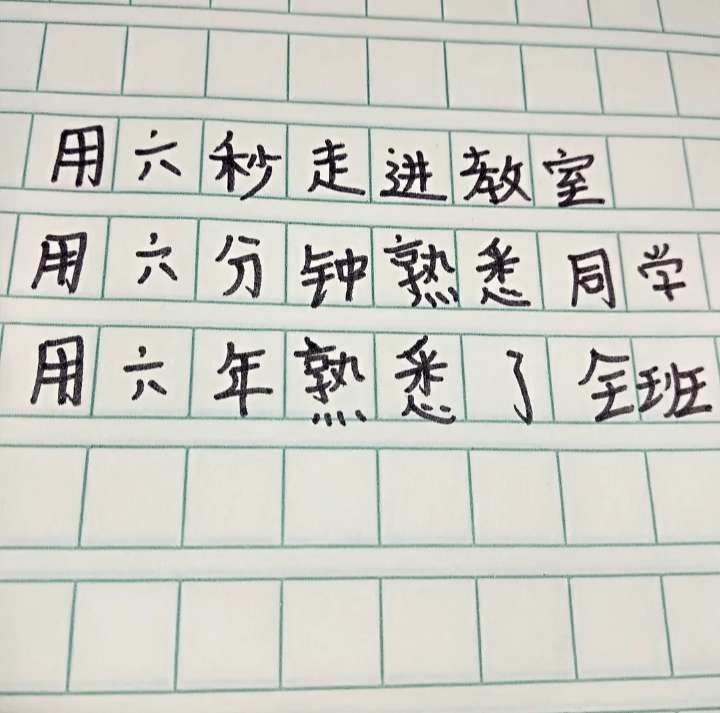 用六秒走进教室
用六分钟熟悉同学
用六年熟悉了全班